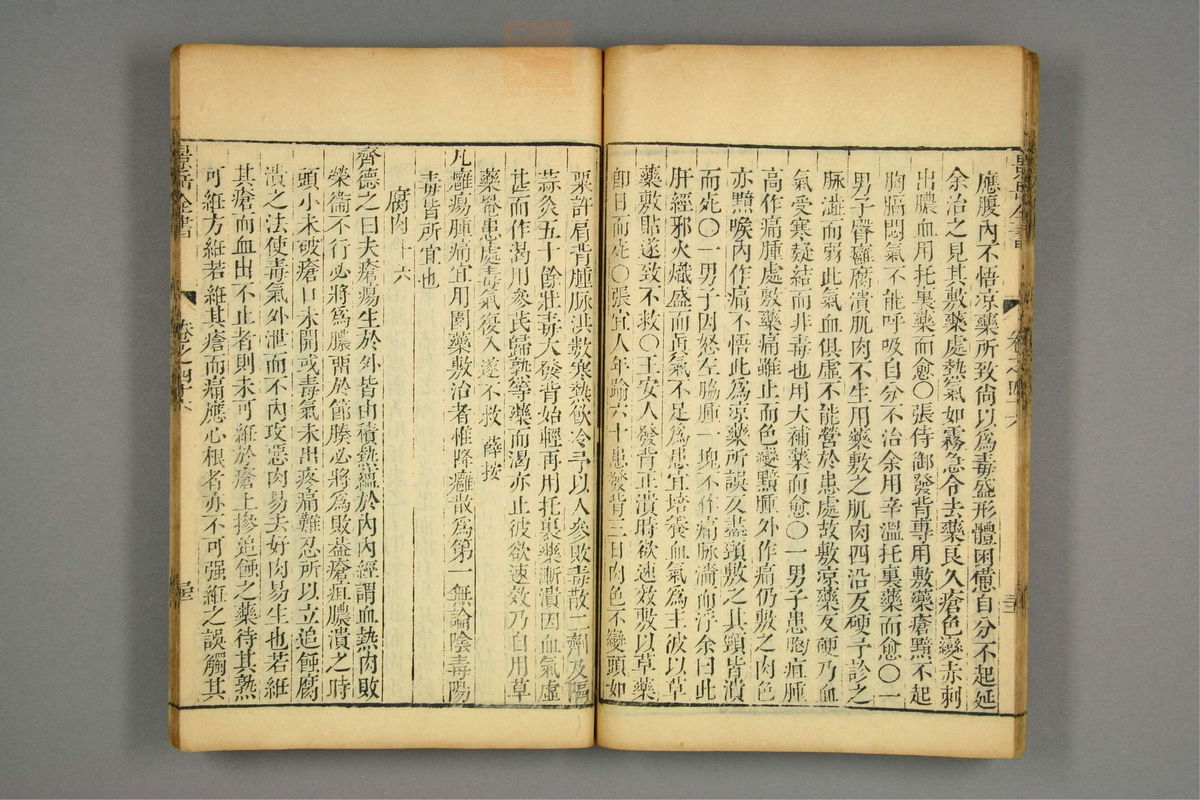 應腹內不悟凉藥所致尙以爲毒盛形體困憊自分不起延
余治之見其敷藥處熱氣如霧急令去藥良久瘡色變赤刺
出膿血用托裏藥而愈〇張侍御發背專用敷藥瘡黯不起
胸膈悶氣不能呼吸自分不治余用辛溫托裏藥而愈〇一
男子臀癰腐潰肌肉不生用藥敷之肌肉四沿反硬予診之
脉濇而弱此氣血俱虛不能營於患處故敷凉藥反硬乃血
氣受寒凝結而非毒也用大補藥而愈〇一男子患胸疽腫
高作痛腫處敷藥痛雖止而色變黯腫外作痛仍敷之肉色
亦黯喉內作痛不悟此爲凉藥所誤反盡頸敷之其頸皆潰
而死〇一男子因怒左脇腫一塊不作痛脉濇而浮余曰此
肝經邪火熾盛而眞氣不足爲患宜培養血氣爲主彼以草
藥敷貼遂致不救〇王安人發背正潰時欲速效敷以草藥
卽日而死〇張宜人年踰六十患發背三日肉色不變頭如
粟許肩背腫脉洪數寒熱飲冷予以人參敗毒散二劑及隔
蒜灸五十餘壯毒大發背始輕再用托裏藥漸潰因血氣虛
甚而作渴用參芪歸熟等藥而渴亦止彼欲速效乃自用草
藥罨患處毒氣復入遂不救 薛按
凡癰瘍腫痛宜用圍藥敷治者惟降癰散爲第一無論陰毒陽
毒皆所宜也
腐肉 十六
齊德之曰夫瘡瘍生於外皆由積熱蘊於內內經謂血熱肉敗
榮衞不行必將爲膿畱於節腠必將爲敗葢瘡疽膿潰之時
頭小未破瘡口未開或毒氣未出疼痛難忍所以立追蝕腐
潰之法使毒氣外泄而不內攻惡肉易去好肉易生也若紝
其瘡而血出不止者則未可紝於瘡上摻追蝕之藥待其熟
可紝方紝若紝其瘡而痛應心根者亦不可强紝之誤觸其
景岳全書
卷之四十六